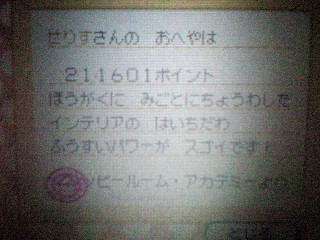 せりすさんの おへやは
211601ポイント
ほうがくに みごとにちょうわした
インテリアの はいちだわ
ふうすいパワーが スゴイです!
ッピールーム・アカデミーより
とじる